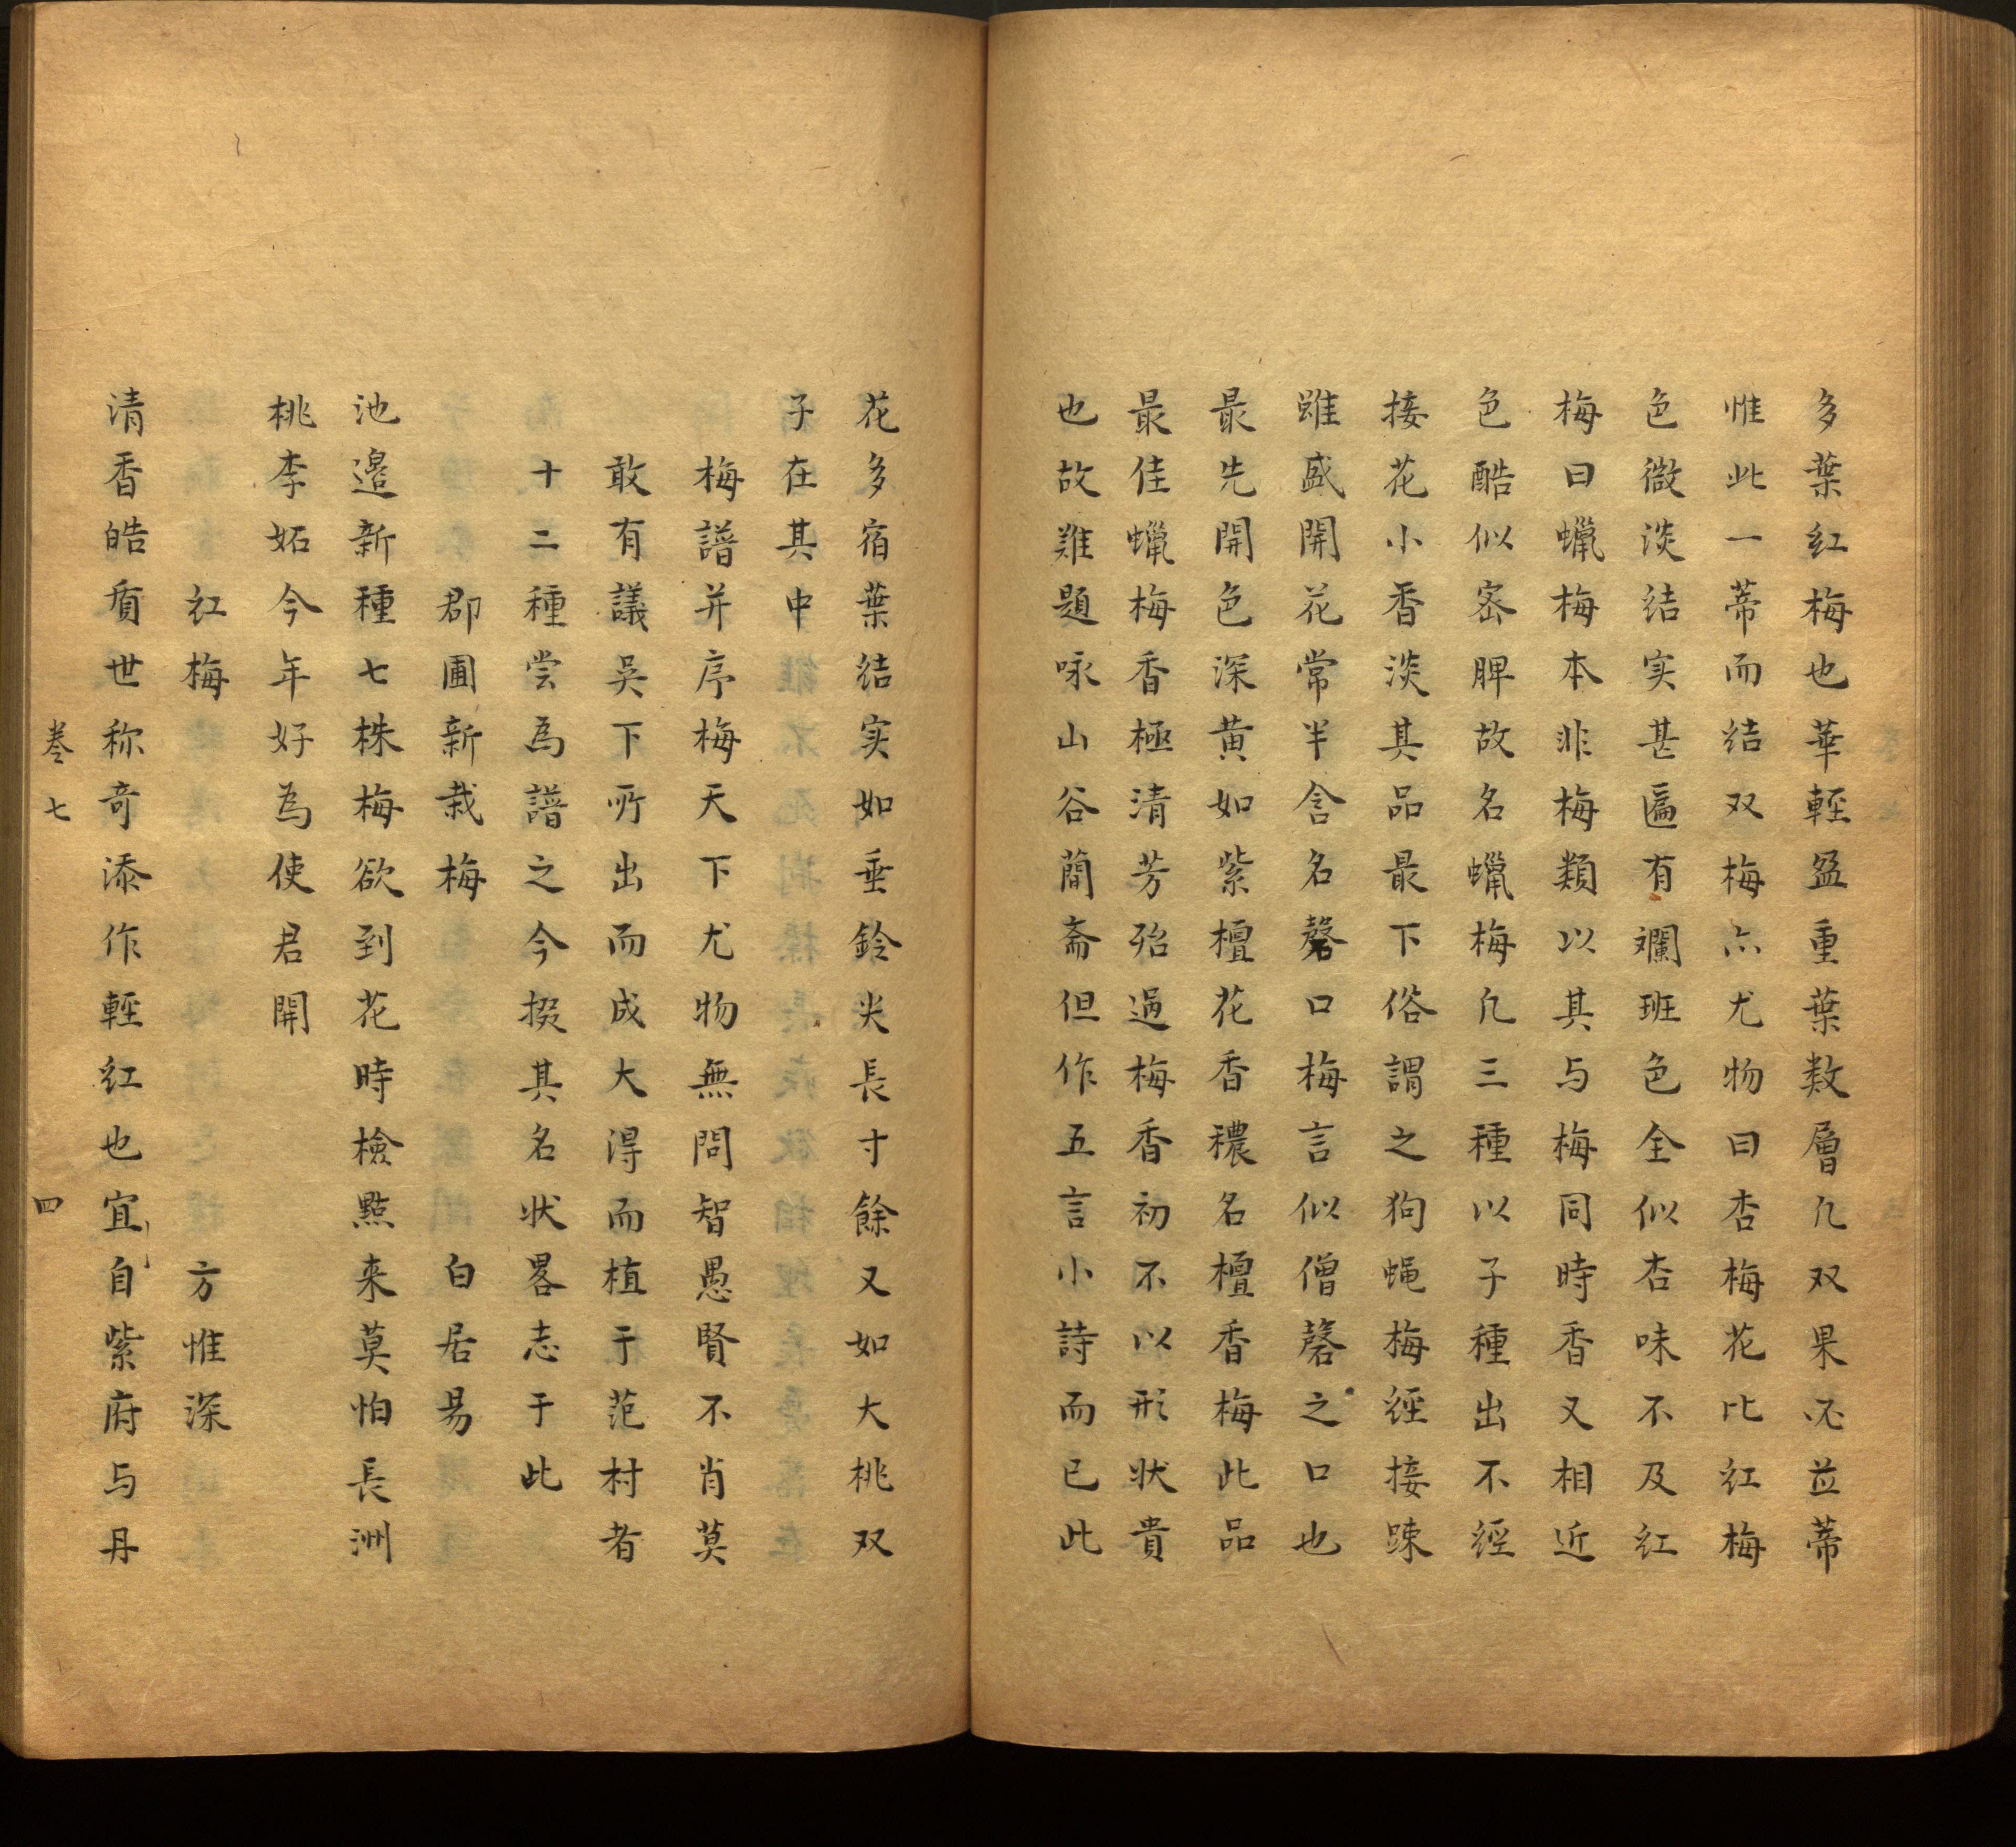 多葉紅梅也華輕盈重葉数層凣双果必並蒂
惟此一蒂而結双梅亦尤物曰杏梅花比紅梅
色微淡結实甚匾有斓班色全似杏味不及紅
梅曰蠟梅本非梅類以其与梅同時香又相近
色酷似宻脾故名蠟梅凣三種以子種出不經
接花小香淡其品最下俗謂之狗蝇梅經接踈
雖盛開花常半含名磬口梅言似僧磬之口也
最先開色深黄如紫檀花香穠名檀香梅此品
最佳蠟梅香極清芳殆過梅香初不以形状貴
也故難題咏山谷蕳斋但作五言小詩而已此
花多宿葉结实如垂鈴尖長寸餘又如大桃双
子在其中
梅譜并序梅天下尤物無問智愚賢不肖莫
敢有議吳下所出而成大得而植于范村者
十二種尝為譜之今掇其名状畧志于此
郡圃新栽梅　白居易
池邉新種七株梅欲到花時檢點来莫怕長洲
桃李妬今年好為使君開
紅梅　方惟深
清香皓質世称奇添作輕紅也宜自紫府与丹
卷七　四